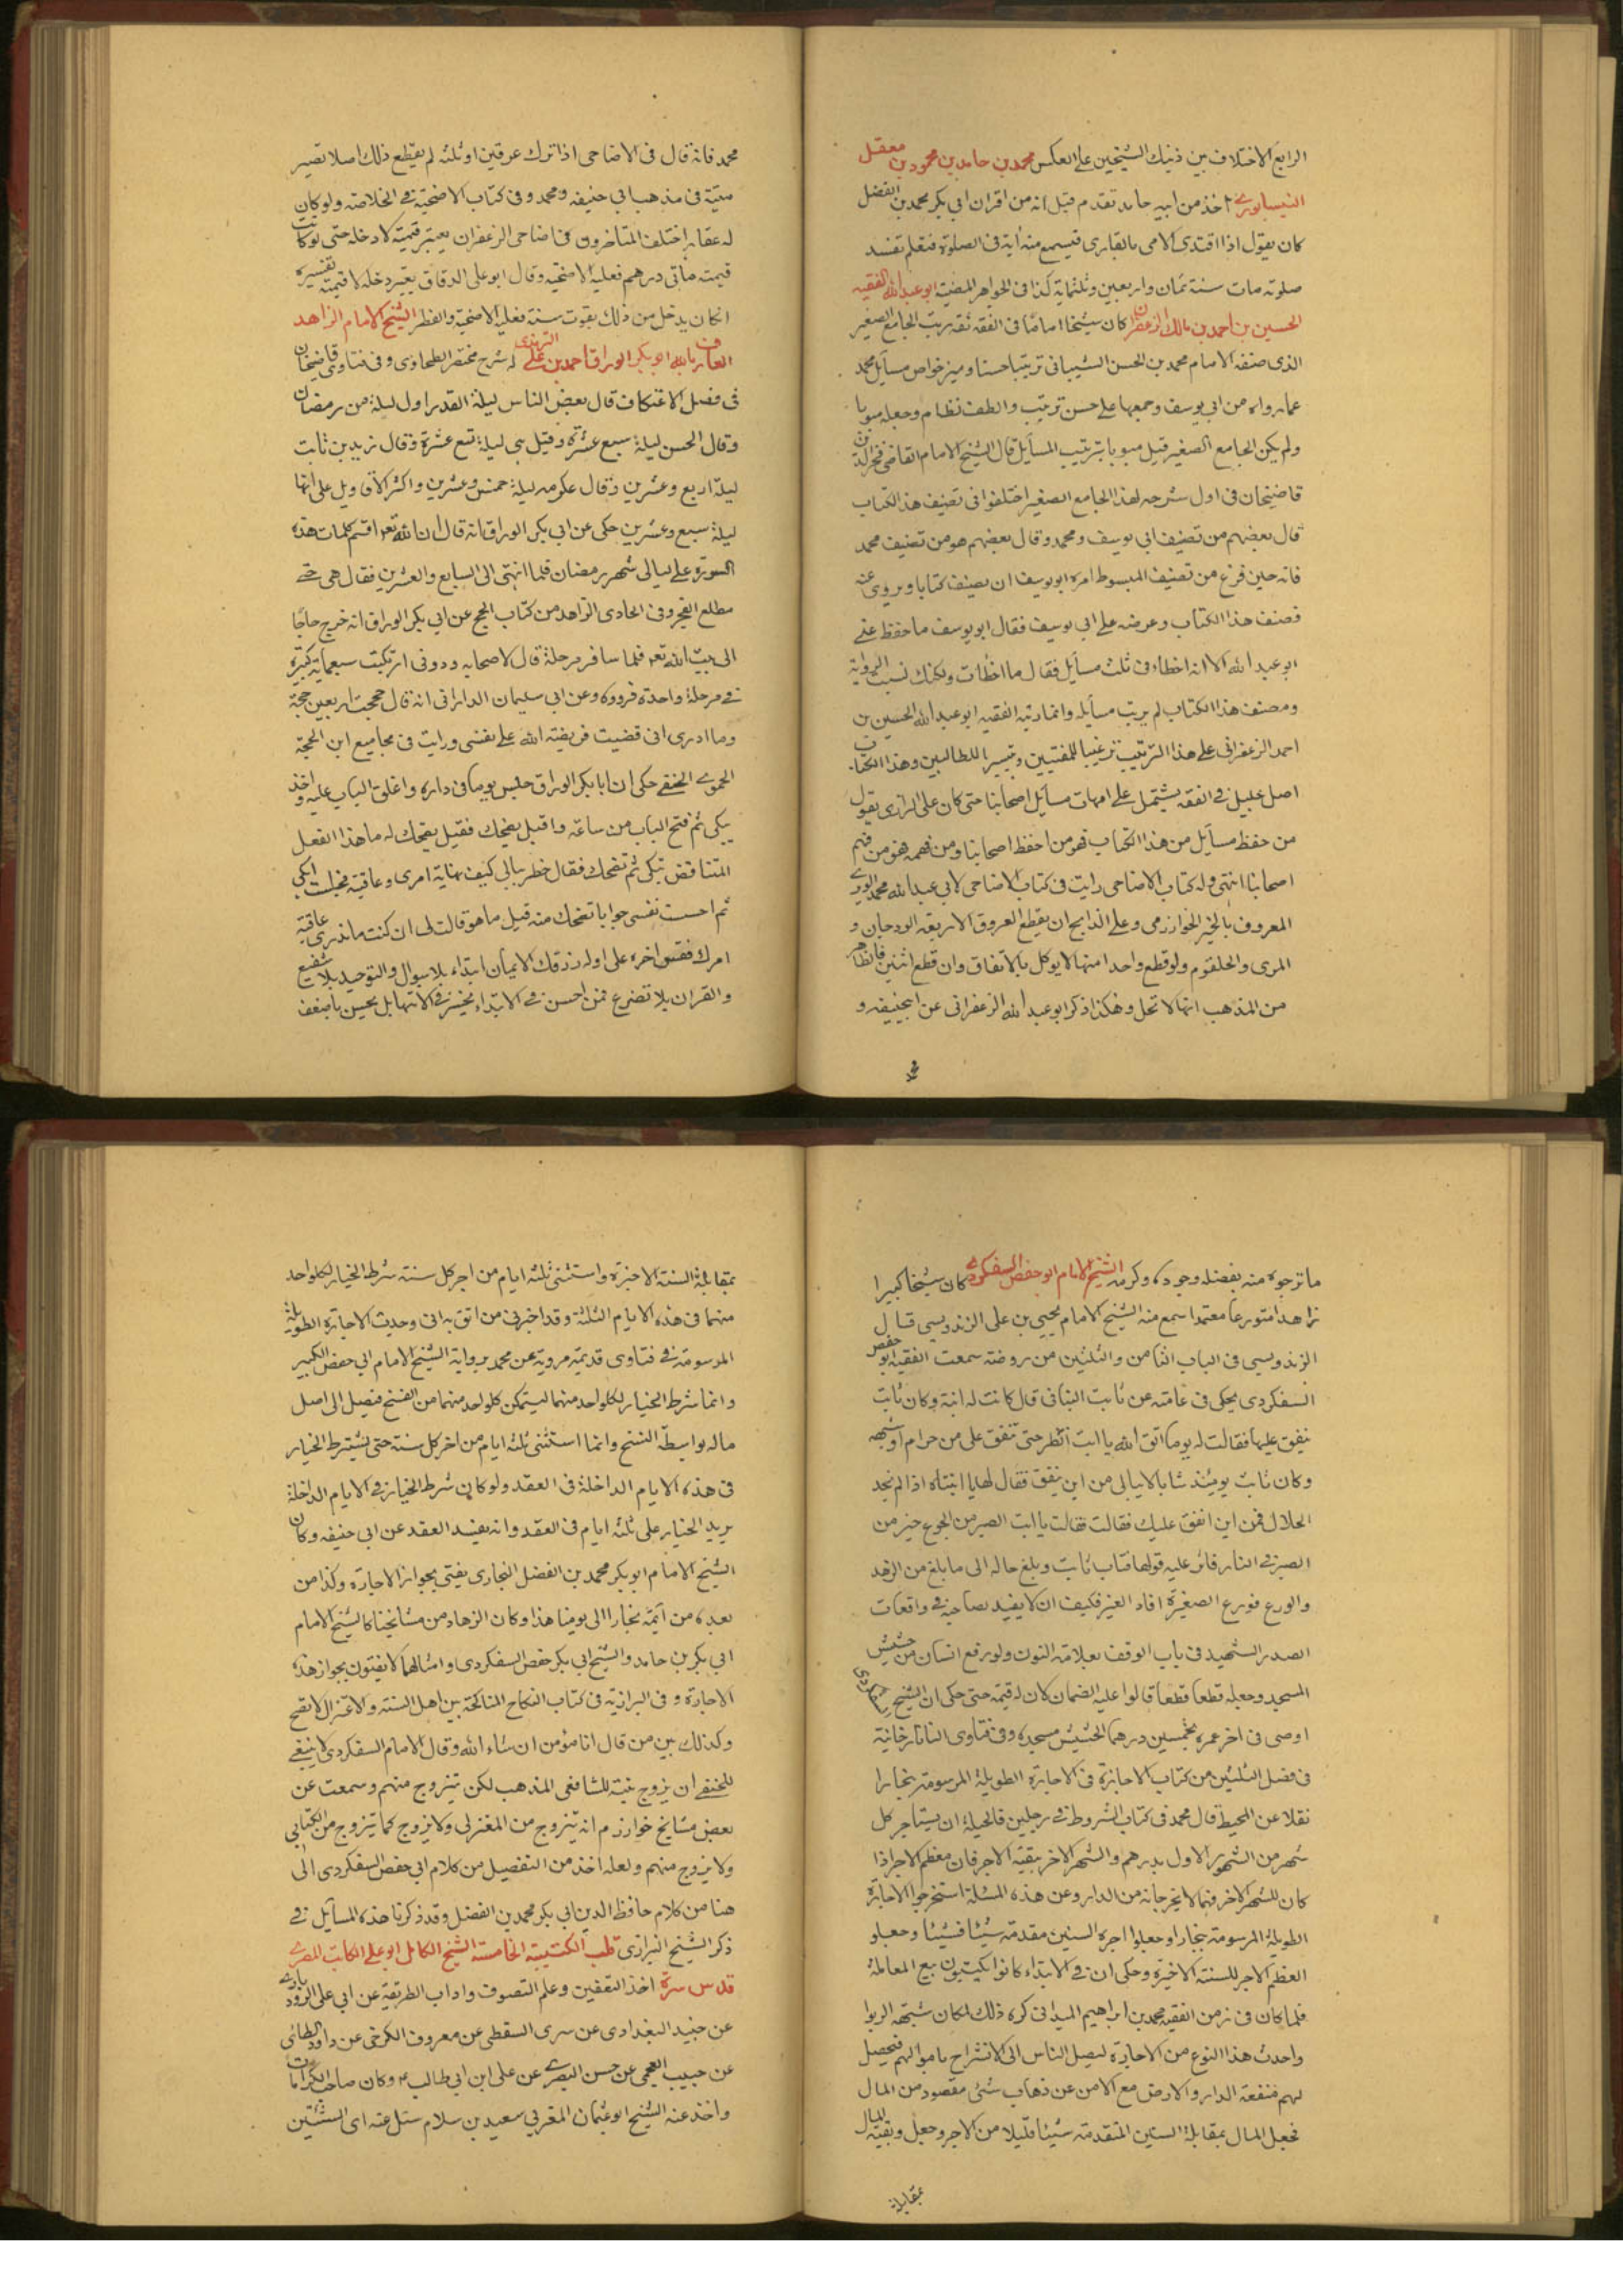 الرابع الاختلاف بين ذينك الشيخين على العكس محمد بن حامد بن محمود بن معقل
النيسابوري اخذ من ابيه حامد تقدم قيل انه من اقران ابي بكر محمد بن الفضل
كان يقول اذا اقتدى الامى بالقارى فيسمع منه اية فى الصلوة فتعلم تفسد
صلوته مات سنة ثمان واربعين وثلثماية كذا فى الجواهر المضية ابو عبد الله الفقيه
الحسين بن احمد بن مالك الزعفرانى كان شيخا اماما فى الفقه ثقة رتب الجامع الصغير
الذى صنفه الامام محمد بن الحسن الشيبانى ترتيبا حسنا وميز خواص مسايل محمد
عما رواه من ابى يوسف وجمعها على حسن ترتيب والطف نظام وجعله مبوبا
ولم يكن الجامع الصغير قبل مبوبا بترتيب المسايل قال الشيخ الامام القاضى فخر الدين
قاضيخان فى اول شرحه لهذا الجامع الصغير اختلفوا فى تصنيف هذا الكتاب
قال بعضهم من تصنيف ابى يوسف ومحمد وقال بعضهم هو من تصنيف محمد
فانه حين فرغ من تصنيف المبسوط امره ابو يوسف ان يصنف كتابا ويروى عنه
فصنف هذا الكتاب وعرضه على ابى يوسف فقال ابو يوسف ما حفظ عنى
ابو عبد الله الا انه اخطاء فى ثلث مسايل فقال ما اخطات ولكنك نسيت الرواية
ومصنف هذا الكتاب لم يرتب مسايله وانما رتبه الفقيه ابو عبد الله الحسين بن
احمد الزعفرانى على هذا الترتيب ترغيبا للمفتيين وتيسيرا للطالبين وهذا الكتاب
اصل جليل فى الفقه يشتمل على امهات مسايل اصحابنا حتى كان على الرازى يقول
من حفظ مسايل من هذا الكتاب فهو من احفظ اصحابنا ومن فهمه فهو من فهم
اصحابنا انتهى وله كتاب الاضاحى رايت فى كتاب الاضاحى لابى عبد الله محمد الوبرى
المعروف بالخير الخوارزمى وعلى الذابح ان يقطع العروق الاربعة الودجان و
المرى والحلقوم ولو قطع واحدا منها لا يوكل بالاتفاق وان قطع اثنين فالظاهر
من المذهب انها لا تحل وهكذا ذكر ابو عبد الله الزعفرانى عن ابيحنيفه و
محمد
محمد فانه قال فى الاضاحى اذا ترك عرقين او ثلثه لم يقطع ذلك اصلا تصير
ميتة فى مذهب ابى حنيفه ومحمد وفى كتاب الاضحية فى الخلاصه ولو كان
له عقار اختلف المتاخرون فى اضاحى الزعفران يعتبر قيمته لا دخله حتى لو كانت
قيمته مأتى درهم فعليه الاضحيه وقال ابو على الدقاق يعتبر دخله لا قيمته تفسيره
ان كان يدخل من ذلك بقوت سنة فعليه الاضحية والفطر الشيخ الامام الزاهد
العارف بالله ابو بكر الوراق احمد بن على الترمذى له شرح مختصر الطحاوى وفى فتاوى قاضيخان
فى فصل الاعتكاف قال بعض الناس ليلة القدر اول ليلة من رمضان
وقال الحسن ليلة سبع عشرة وقيل هى ليلة تسع عشرة وقال زيد بن ثابت
ليلة اربع وعشرين وقال عكرمه ليلة خمس وعشرين واكثر الاقاويل على انها
ليلة سبع وعشرين حكى عن ابى بكر الوراق انه قال ان الله تعم اقسم كلمات هذه
السورة على ليالى شهر رمضان فلما انتهى الى السابع والعشرين فقال هى حتى
مطلع الفجر وفى الحادى الزاهد من كتاب الحج عن ابى بكر الوراق انه خرج حاجا
الى بيت الله تعم فلما سافر مرحلة قال لاصحابه ردونى ارتكبت سبعماية كبيرة
فى مرحلة واحدة فردوه وعن ابى سليمان الدارانى انه قال حججت اربعين حجة
وما ادرى انى قضيت فريضة الله على نفسى ورايت فى مجاميع ابن الحجة
الحموى الحنفى حكى ان ابا بكر الوراق جلس يوما فى داره واغلق الباب عليه واخذ
يبكى ثم فتح الباب من ساعته واقبل يضحك فقيل يضحك له ما هذا الفعل
المتناقض تبكى ثم تضحك فقال خطر ببالى كيف نهاية امرى وعاقبة فجلست ابكى
ثم احست نفسى جوابا تضحك منه قيل ما هو قالت لى ان كنت ما تدرى عاقبة
امرك فقس اخره على اوله رزقك الايمان ابتداء بلا سوال والتوحيد بلا شفيع
والقران بلا تضرع فمن احسن فى الابتداء يحسن فى الانتها بل يحسن باضعف
ما ترجوه منه بفضله وجوده وكرمه الشيخ الامام ابو حفص السفكردى كان شيخا كبيرا
زاهدا متورعا معتمدا سمع منه الشيخ الامام يحيى بن على الزندويسى قال
الزندويسى فى الباب الثامن والثلثين من روضته سمعت الفقيه ابو حفص
السفكردى يحكى فى عامته عن ثابت البنانى قال كانت له ابنة وكان ثابت
ينفق عليها فقالت له يوما اتق الله يا ابت انظر حتى تنفق على من حرام او شبهه
وكان ثابت يومئذ شابا لا يبالى من اين ينفق فقال لها يا ابنتاه اذا لم نجد
الحلال فمن اين انفق عليك فقالت فقالت يا ابت الصبر من الجوع خير من
الصبر فى النار فاثر عليه قولها فتاب ثابت وبلغ حاله الى ما بلغ من الزهد
والورع فورع الصغيرة افاد الغير فكيف ان لا يفيد لصاحبه فى واقعات
الصدر الشهيد فى باب الوقف بعلامة النون ولو رفع انسان من حشيش
المسجد وجعله قطعا قطعا قالوا عليه الضمان كان له قيمة حتى حكى ان الشيخ السفكردى
اوصى فى اخر عمره بخمسين درهما لحشيش مسجده وفى فتاوى التاتارخانية
فى فصل الثلثين من كتاب الاجارة فى الاجارة الطويلة المرسومة ببخارا
نقلا عن المحيط قال محمد فى كتاب الشروط فى رجلين فالحيلة ان يستاجر كل
شهر من الشهور الاول بدرهم والشهر الاخر ببقية الاجر فان معظم الاجر اذا
كان للشهر الاخر فهما لا يخرجانه من الدار وعن هذه المسئلة استخرجوا الاجارة
الطويلة المرسومة ببخارا وجعلوا اجرة السنين مقدمة شيئا فشيئا وجعلو
العظم الاجر للسنة الاخيرة وحكى ان فى الابتداء كانوا يكتبون بيع المعاملة
فلما كان فى زمن الفقيه محمد بن ابراهيم الميدانى كره ذلك لمكان شبهة الربوا
واحدث هذا النوع من الاجارة ليصل الناس الى الانشراح باموالهم فيحصل
لهم منفعة الدار والارض مع الامن عن ذهاب شئ مقصود من المال
فجعل المال بمقابلة السنين المتقدمة شيئا قليلا من الاجر وجعل وبقية المال
بمقابلة
بمقابلة السنة الاخيرة واستثنى ثلثة ايام من اجر كل سنة شرط الخيار لكل واحد
منهما فى هذه الايام الثلثة وقد اخبرنى من اثق به انى وجدت الاجارة الطويلة
المرسومة فى فتاوى قديمة مروية عن محمد برواية الشيخ الامام ابى حفص الكبير
وانما شرط الخيار لكل واحد منهما ليتمكن كل واحد منهما من الفسخ فيصل الى اصل
ماله بواسطة الفسخ وانما استثنى ثلثة ايام من اخر كل سنة حتى يشترط الخيار
فى هذه الايام الداخلة فى العقد ولو كان شرط الخيار فى الايام الداخلة
يريد الخيار على ثلثة ايام فى العقد وانه يفسد العقد عن ابى حنيفه وكان
الشيخ الامام ابو بكر محمد بن الفضل البخارى يفتى بجواز الاجارة وكذا من
بعده من ائمة بخارا الى يومنا هذا وكان الزهاد من مشايخنا كالشيخ الامام
ابى بكر بن حامد والشيخ ابى بكر حفص السفكردى وامثالهما لا يفتون بجواز هذه
الاجارة و فى البزازية فى كتاب النكاح المناكحة بين اهل السنة والاعتزال لا تصح
وكذلك بين من قال انا مؤمن ان شاء الله وقال الامام السفكردى لا ينبغى
للحنفى ان يزوج بنته للشافعى المذهب لكن يتزوج منهم وسمعت عن
بعض مشايخ خوارزم انه يتزوج من المعتزلى ولا يزوج كما يتزوج من الكتابى
ولا يزوج منهم ولعله اخذ من التفصيل من كلام ابى حفص السفكردى الى
هنا من كلام حافظ الدين ابى بكر محمد بن الفضل وقد ذكرنا هذه المسايل فى
ذكر الشيخ البزازى قلب الكتيبة الخامسة الشيخ الكامل ابو على الكاتب المصرى
قدس سره اخذ التلقين وعلم التصوف واداب الطريقة عن ابى على الرودبارى
عن جنيد البغدادى عن سرى السقطى عن معروف الكرخى عن داود الطائى
عن حبيب العجمى عن حسن البصرى عن على ابن ابى طالب وكان صاحب الكرامات
واخذ عنه الشيخ ابو عثمان المغربى سعيد بن سلام سئل عنه اى الشيئين